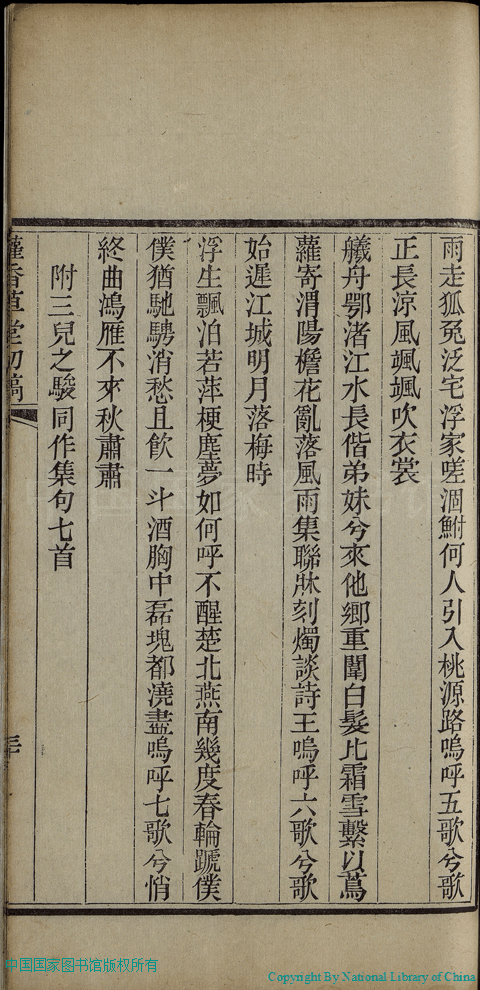 雨走狐兔泛宅浮家嗟涸鮒何人引入桃源路嗚呼五歌兮歌
正長涼風颯颯吹衣裳
艤舟鄂渚江水長偕弟妹兮來他鄉重闈白髮比霜雪繫以蔦
蘿寄渭陽檐花亂落風雨集聯牀刻燭談詩王嗚呼六歌兮歌
始遲江城明月落梅時
浮生飄泊若萍梗塵夢如何呼不醒楚北燕南幾度春輪蹏僕
僕猶馳騁消愁且飲一斗酒胸中磊塊都澆盡嗚呼七歌兮悄
終曲鴻雁不來秋肅肅
附三兒之駿同作集句七首
蘐香草堂初稿
三十
中国国家图书馆版权所有
Copyright By National Library of China